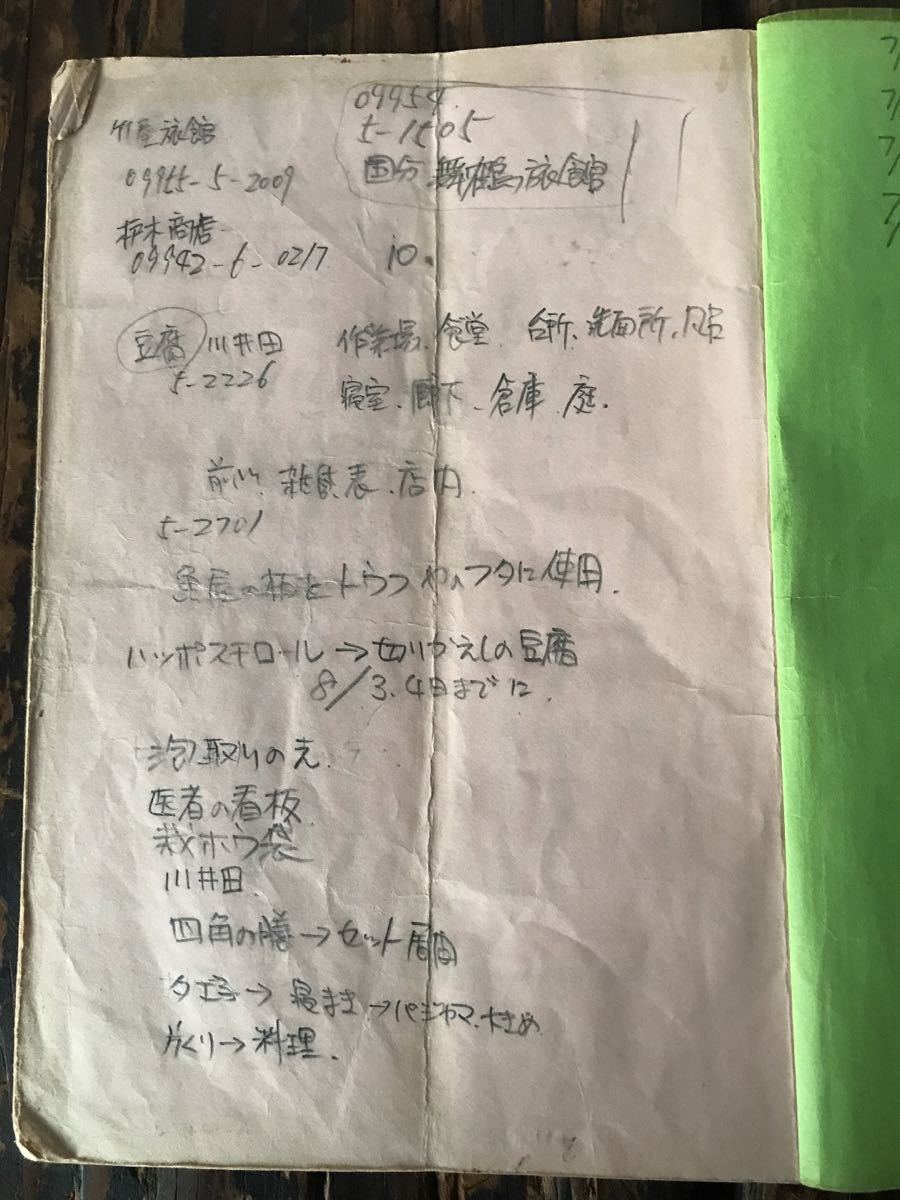 竹屋旅館
09955-5-2009
09954
5-1505
国分 舞鶴旅館
商店
09942-6-0217
10.
豆腐 川井田
5-2226
作業場、食堂 台所、洗面所、店
寝室、廊下、倉庫 庭.
前川 雑貨表、店内
5-2701
魚屋の トウフ やのフタに使用.
ハッポスチロール→切りかえしの豆腐
8/3.4日までに.
泡取りの
医者の看板
裁ホウ袋
川井田
四角の膳→セット
タエ子→寝まき→パジャマ、大きめ
→料理.